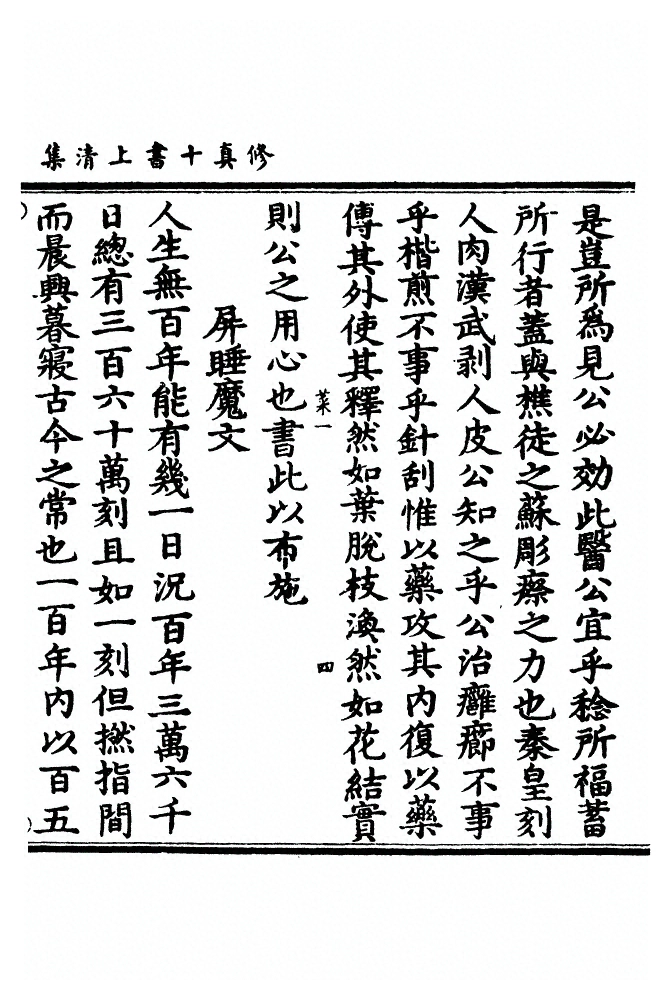 修真十書上清集
是豈所爲見公必効此醫公宜乎稔所福蓄
所行者蓋與樵徒之蘇彫瘵之力也秦皇刻
人肉漢武剥人皮公知之乎公治癰癤不事
乎楷煎不事乎針刮惟以藥攻其内復以藥
傅其外使其釋然如葉脫枝渙然如花結實
菜一
四
則公之用心也書此以布施
屏睡魔文
人生無百年能有幾一日況百年三萬六千
日總有三百六十萬刻且如一刻但撚指間
而晨興暮寢古今之常也一百年内以百五